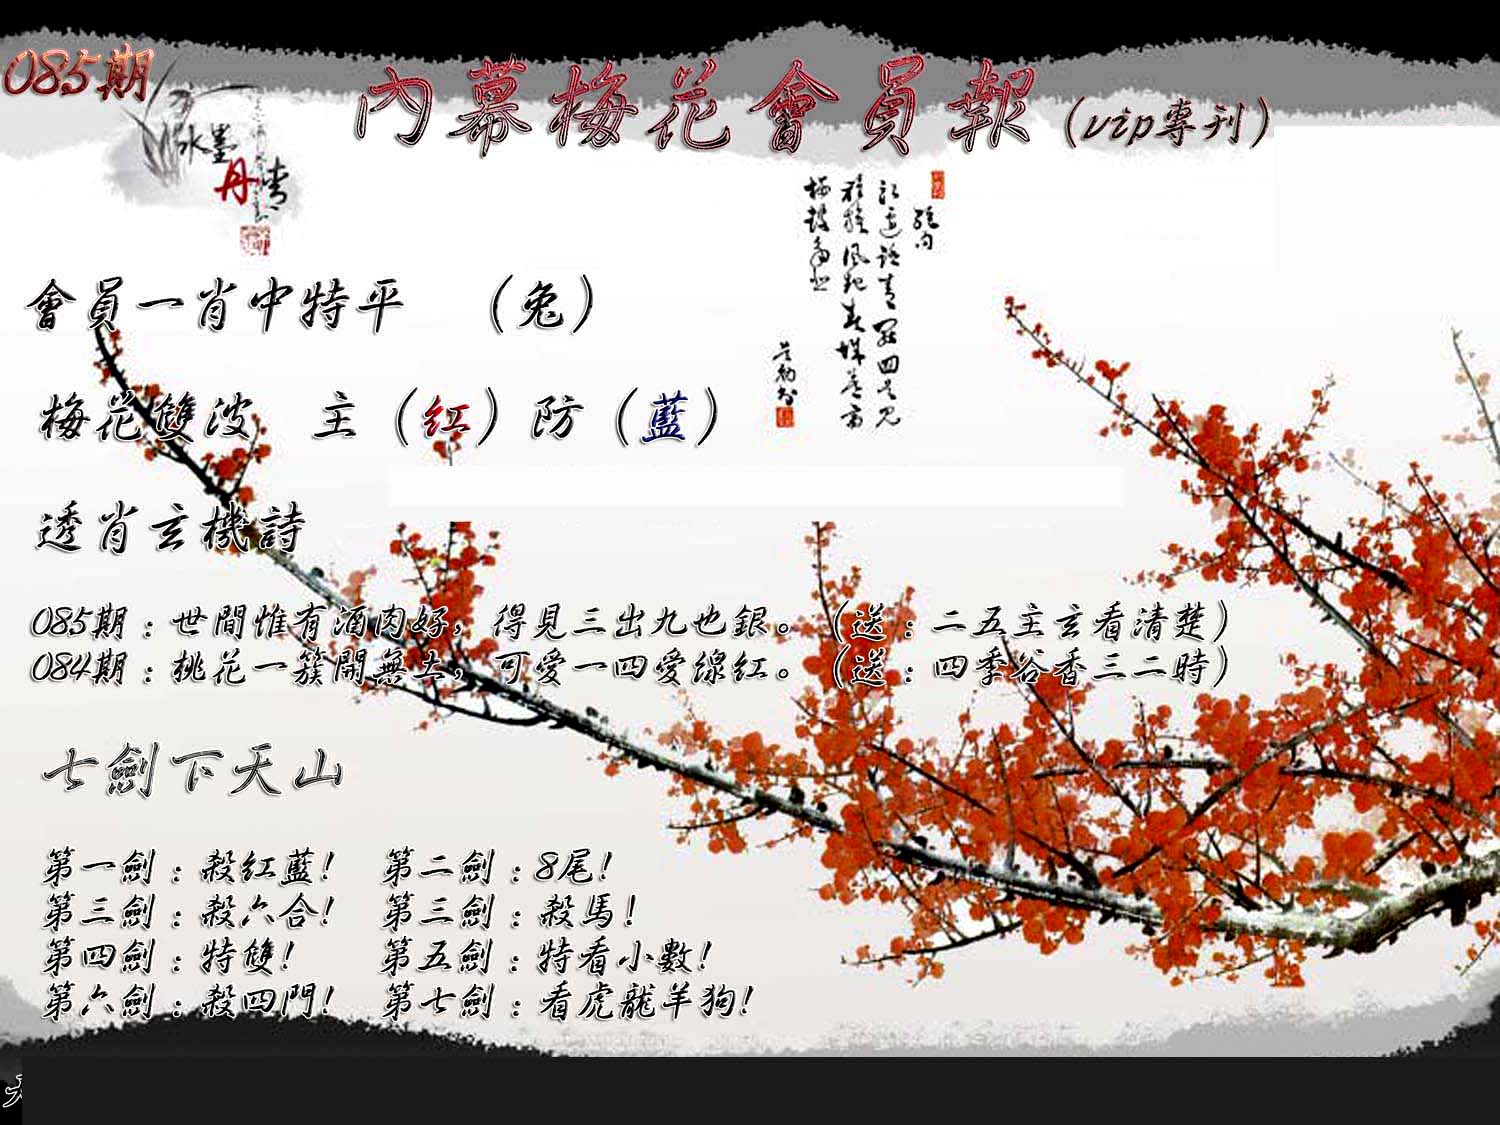 085期
內幕梅花會員報(vip專刊)
水墨
丹青
會員一肖中特平 (兔)
梅花雙波 主(紅)防(藍)
透肖玄機詩
085期:世間惟有酒肉好,得見三出九也銀。(送:二五主玄看清楚)
084期:桃花一簇開無土,可愛一四愛線紅。(送:四季谷香三二時)
七劍下天山
第一劍:殺紅藍! 第二劍:8尾!
第三劍:殺六合! 第三劍:殺馬!
第四劍:特雙! 第五劍:特看小數!
第六劍:殺四門! 第七劍:看虎龍羊狗!